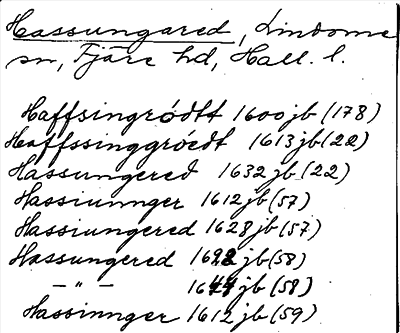 Hassungared, Lindome
sn, Fjäre hd, Hall. l.
Haffsingrödtt 1600 jb (178)
Haffssinggröedt 1613 jb (22)
Hassungered 1632 jb (22)
Hassiunnger 1612 jb (57)
Hassiungered 1628 jb (57)
Hassungered jb (58)
— " — jb (58)
Hassinnger 1612 jb (59)